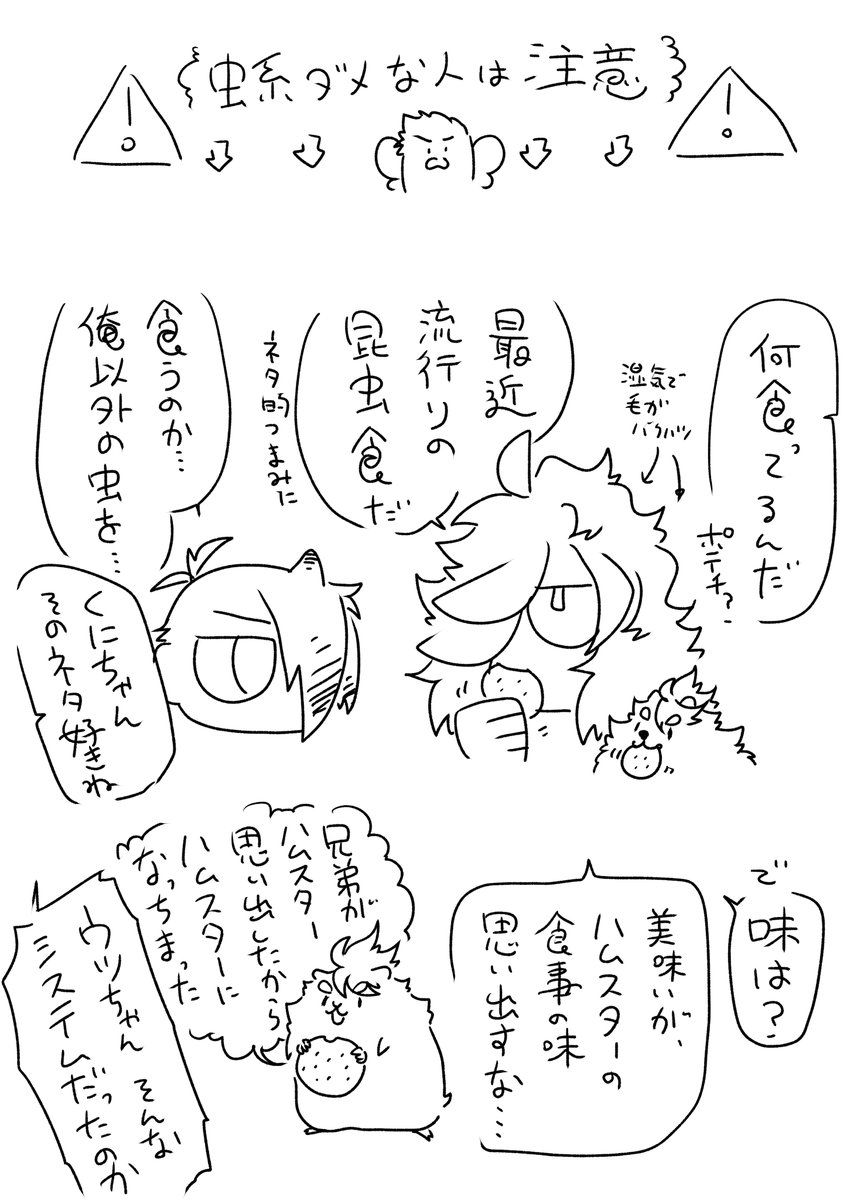 虫系ダメな人は注意
何食ってるんだ
ポテチ?
湿気で
毛が
バクハツ
最近
流行りの
昆虫食だ
ネタ的つまみに
食うのか…
俺以外の虫を…
くにちゃん
そのネタ好きね
で
味は?
美味いが、
ハムスターの
食事の味
思い出すな…
兄弟が
ハムスター
思い出したから
ハムスターに
なっちまった
ウツちゃん そんな
システムだったのか